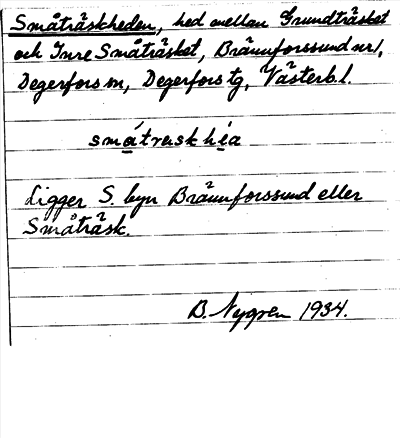 Småträskheden, hed mellan Grundträsket
och Inre Småträsket, Brännforssund nr 1,
Degerfors sn, Degerfors tg, Västerb. l.
småtrask hea
Ligger S. byn Brännforssund eller
Småträsk.
B. Nygren 1934.